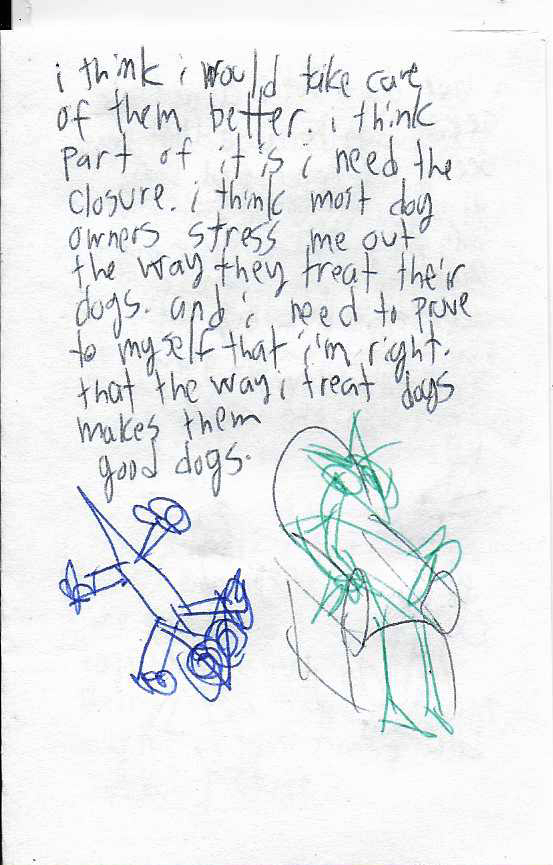 i think i would take care
of them better. i think
part of it is i need the
closure. i think most dog
owners stress me out
the way they treat their
dogs. and i need to prove
to myself that i'm right.
that the way i treat dogs
makes them
good dogs.